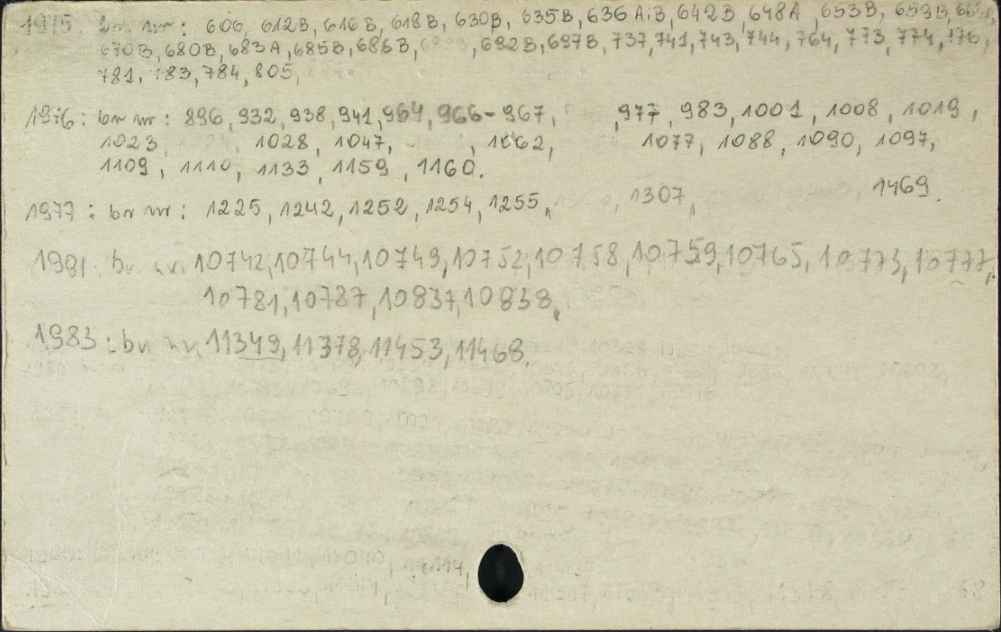 1975 bn nr: 606, 612B, 616B, 618B, 630B, 635B, 636 A i B, 642B, 648A, 653B, 659B,
670B, 680B, 683A, 685B, 686B, 692B, 697B, 737, 741, 743, 744, 764, 773, 774, 776,
781, 783, 784, 805,
1976: bn nr: 896, 932, 938, 941, 964, 966-967, 977, 983, 1001, 1008, 1019,
1023, 1028, 1047, 1062, 1077, 1088, 1090, 1097,
1109, 1110, 1133, 1159, 1160.
1977: bn nr: 1225, 1242, 1252, 1254, 1255, 1307, 1469.
1981: bn nr: 10742, 10744, 10749, 10752, 10758, 10759, 10765, 10773, 10777,
10781, 10787, 10837, 10838,
1983: bn nr, 11349, 11378, 11453, 11468.